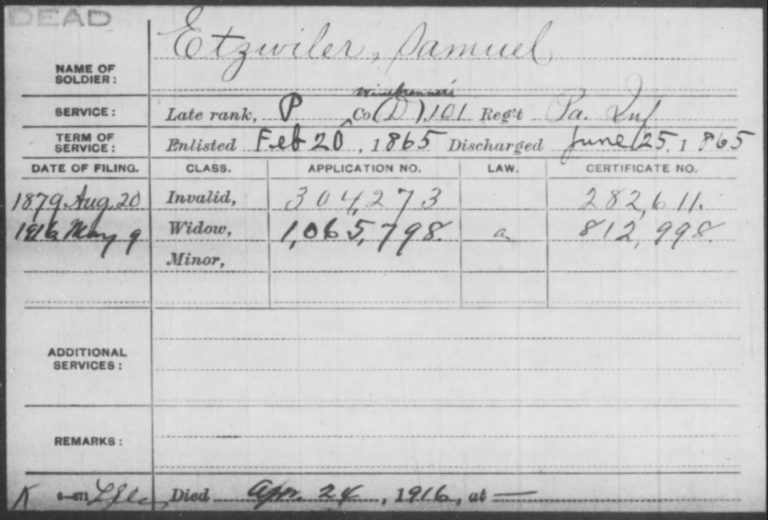 DEAD
NAME OF SOLDIER: Etzwiler, Samuel
Winebrenner's
SERVICE: Late rank, P Co (D), 101 Reg't Pa. Inf
TERM OF SERVICE: Enlisted Feb 20, 1865 Discharged June 25, 1865
DATE OF FILING. CLASS. APPLICATION NO. LAW. CERTIFICATE NO.
1879 Aug. 20 Invalid, 304,273 282,611.
1916 May 9 Widow, 1,065,798. a 812,998.
Minor,
ADDITIONAL SERVICES:
REMARKS:
K Died Apr. 24, 1916, at —